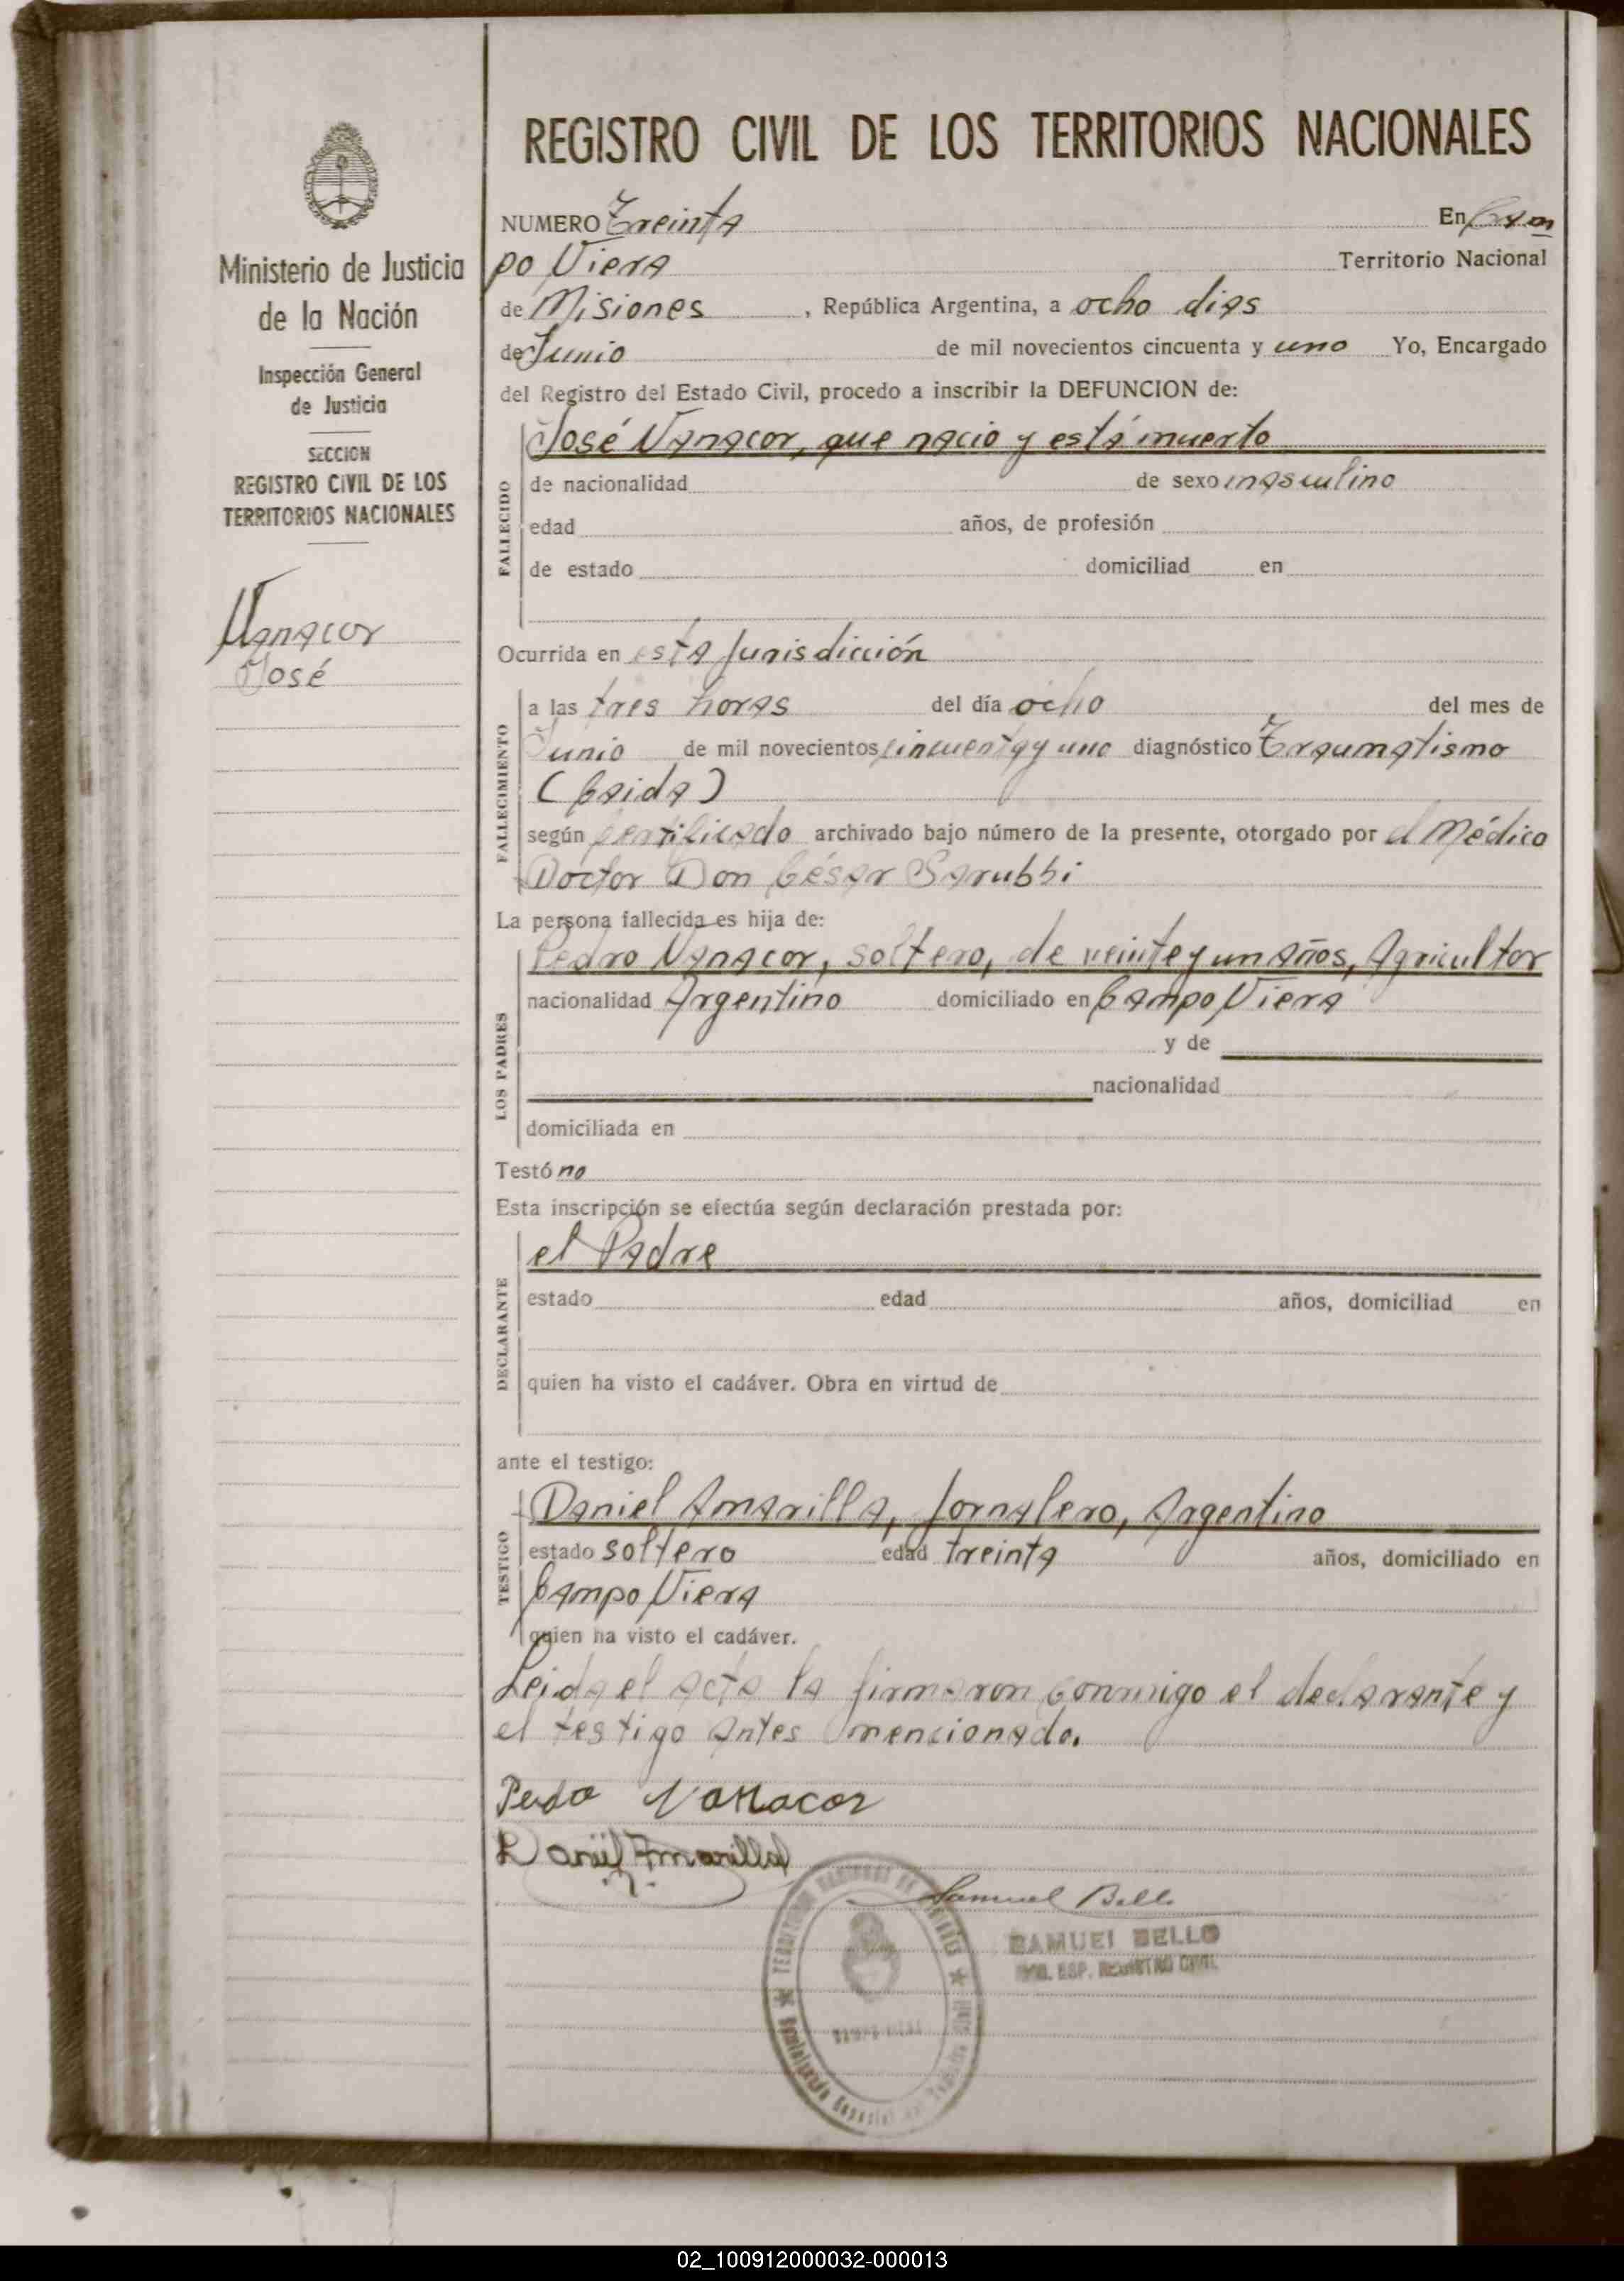 REGISTRO CIVIL DE LOS TERRITORIOS NACIONALES
Ministerio de Justicia
de la Nación
Inspección General
de Justicia
SECCION
REGISTRO CIVIL DE LOS
TERRITORIOS NACIONALES
Vanacor
José
NUMERO Treinta En Cam
po Viera Territorio Nacional
de Misiones, República Argentina, a ocho dias
de Junio de mil novecientos cincuenta y uno Yo, Encargado
del Registro del Estado Civil, procedo a inscribir la DEFUNCION de:
FALLECIDO
José Vanacor, que nacio y está muerto
de nacionalidad de sexo masculino
edad años, de profesión
de estado domiciliad en
Ocurrida en esta Jurisdicción
FALLECIMIENTO
a las tres horas del día ocho del mes de
Junio de mil novecientos cincuenta y uno diagnóstico Traumatismo
(Caida)
según Certificado archivado bajo número de la presente, otorgado por el Médico
Doctor Don César Sarubbi
La persona fallecida es hija de:
LOS PADRES
Pedro Vanacor, soltero, de veinte y un años, Agricultor
nacionalidad Argentino domiciliado en Campo Viera
y de
nacionalidad
domiciliada en
Testó no
Esta inscripción se efectúa según declaración prestada por:
DECLARANTE
el Padre
estado edad años, domiciliad en
quien ha visto el cadáver. Obra en virtud de
ante el testigo:
TESTIGO
Daniel Amarilla, Jornalero, Argentino
estado soltero edad treinta años, domiciliado en
Campo Viera
quien ha visto el cadáver.
Leida el acta la firmaron conmigo el declarante y
el testigo antes mencionado.
Pedo Vanacor
Daniel Amarilla
Samuel Bello
SAMUEL BELLO
ESP. REGISTRO CIVIL
02_100912000032-000013